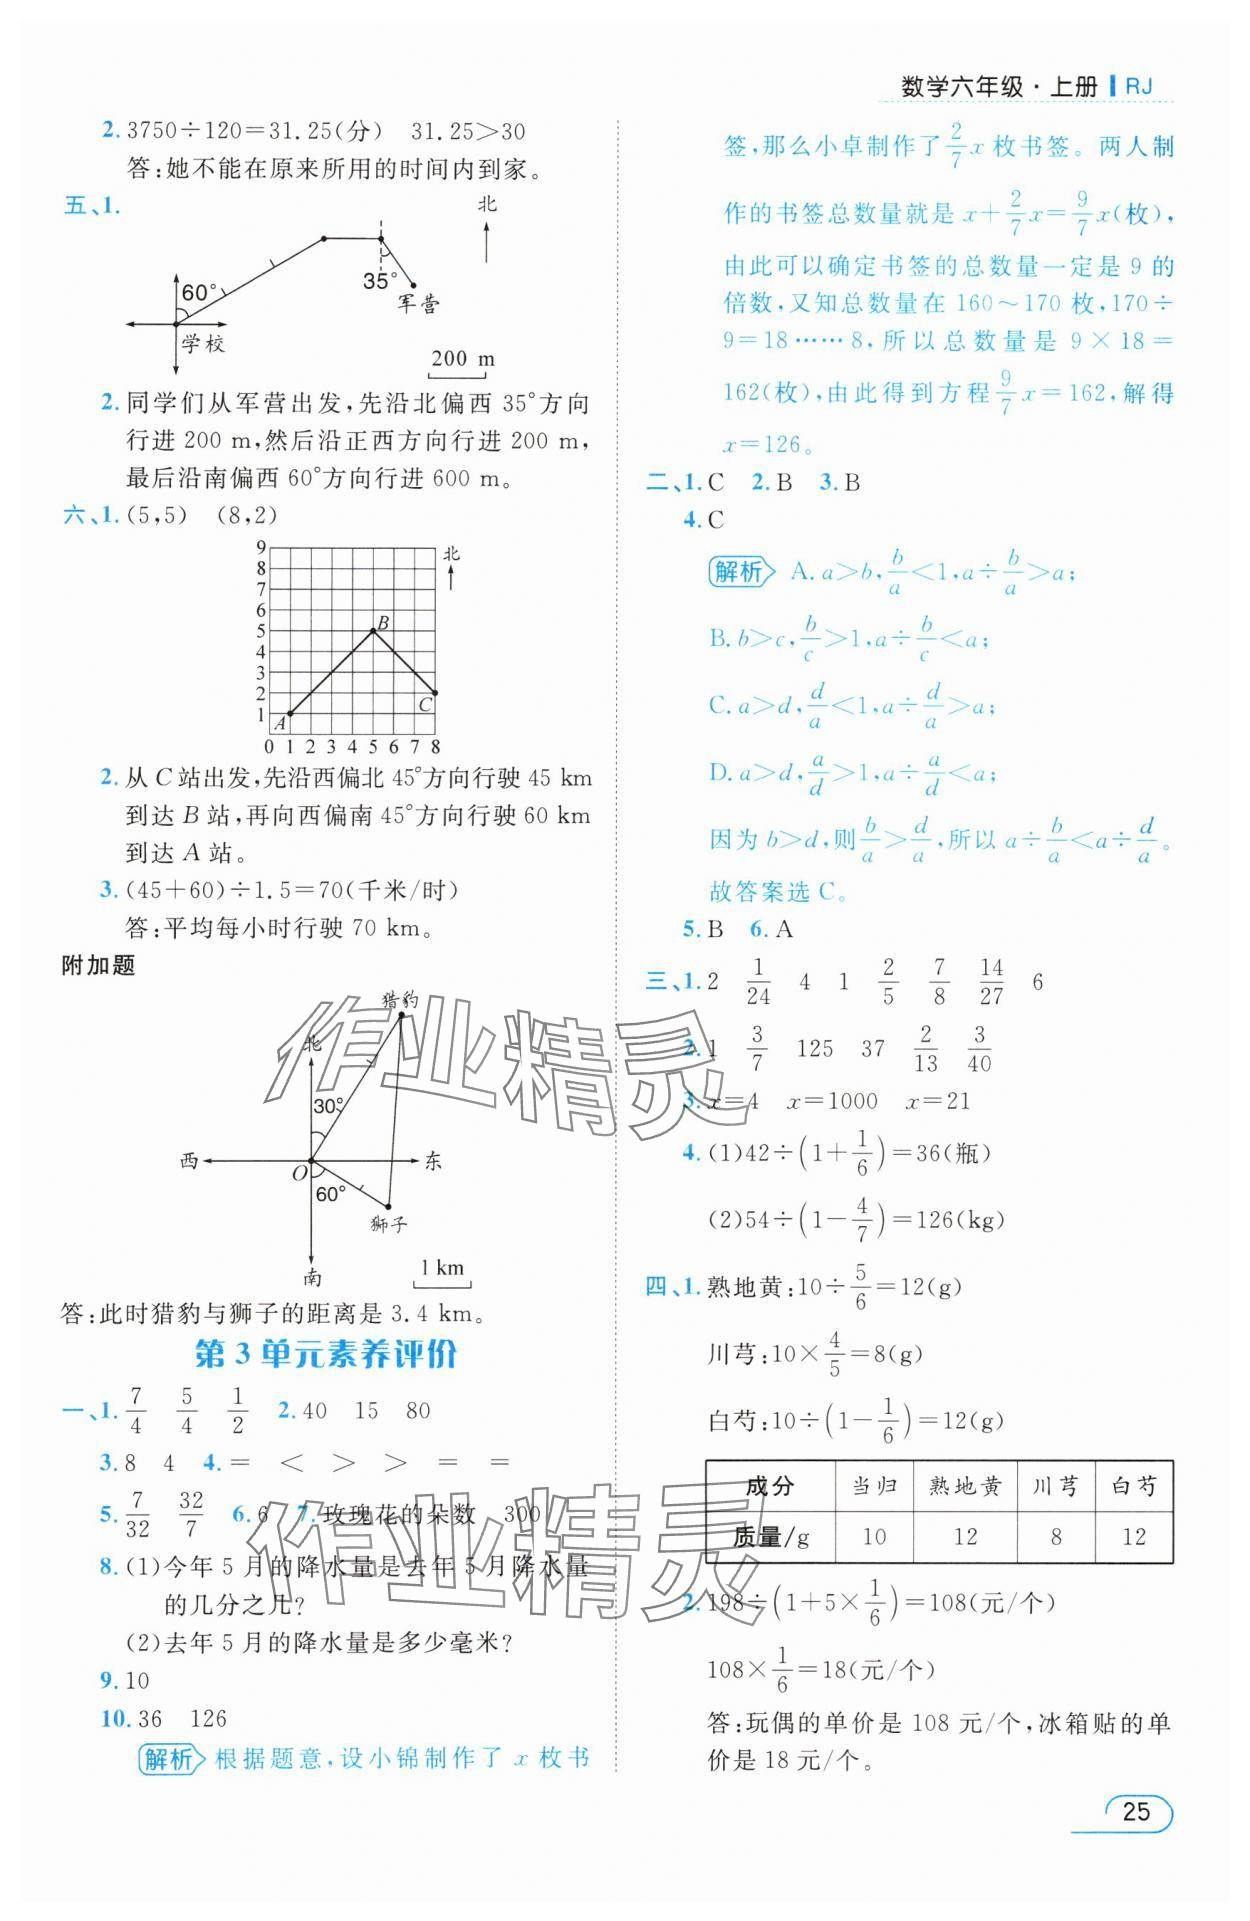 数学六年级·上册 RJ
2. 3750÷120=31.25(分) 31.25>30
答:她不能在原来所用的时间内到家。
五、1.
北
60°
35°
军营
学校
200 m
2. 同学们从军营出发,先沿北偏西 35°方向
行进 200 m,然后沿正西方向行进 200 m,
最后沿南偏西 60°方向行进 600 m。
六、1. (5,5) (8,2)
9
8
7
6
5
4
3
2
1
0 1 2 3 4 5 6 7 8
A
B
C
北
2. 从 C 站出发,先沿西偏北 45°方向行驶 45 km
到达 B 站,再向西偏南 45°方向行驶 60 km
到达 A 站。
3. (45+60)÷1.5=70(千米/时)
答:平均每小时行驶 70 km。
附加题
猎豹
北
30°
西
O
东
60°
狮子
南
1 km
答:此时猎豹与狮子的距离是 3.4 km。
第 3 单元素养评价
一、1. 7/4 5/4 1/2 2. 40 15 80
3. 8 4 4. = < > > = =
5. 7/32 32/7 6. 6 7. 玫瑰花的朵数 300
8. (1)今年 5 月的降水量是去年 5 月降水量
的几分之几?
(2)去年 5 月的降水量是多少毫米?
9. 10
10. 36 126
解析 根据题意,设小锦制作了 x 枚书
签,那么小卓制作了 2/7 x 枚书签。两人制
作的书签总数量就是 x+2/7 x=9/7 x(枚),
由此可以确定书签的总数量一定是 9 的
倍数,又知总数量在 160~170 枚,170÷
9=18……8,所以总数量是 9×18=
162(枚),由此得到方程 9/7 x=162,解得
x=126。
二、1. C 2. B 3. B
4. C
解析 A. a>b, b/a<1, a÷b/a>a;
B. b>c, b/c>1, a÷b/c<a;
C. a>d, d/a<1, a÷d/a>a;
D. a>d, a/d>1, a÷a/d<a;
因为 b>d,则 b/a>d/a,所以 a÷b/a<a÷d/a。
故答案选 C。
5. B 6. A
三、1. 2 1/24 4 1 2/5 7/8 14/27 6
2. 1 3/7 125 37 2/13 3/40
3. x=4 x=1000 x=21
4. (1)42÷(1+1/6)=36(瓶)
(2)54÷(1-4/7)=126(kg)
四、1. 熟地黄:10÷5/6=12(g)
川芎:10×4/5=8(g)
白芍:10÷(1-1/6)=12(g)
成分 当归 熟地黄 川芎 白芍
质量/g 10 12 8 12
2. 198÷(1+5×1/6)=108(元/个)
108×1/6=18(元/个)
答:玩偶的单价是 108 元/个,冰箱贴的单
价是 18 元/个。
25
作业精灵
作业精灵